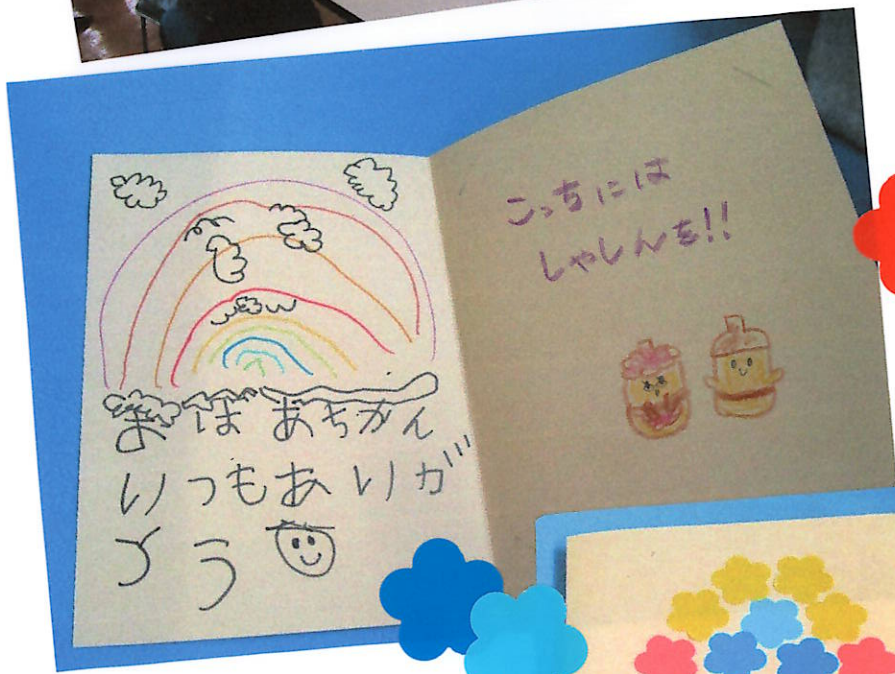 おはあちかん
いつもありが
とう
こっちには
しゃしんを!!